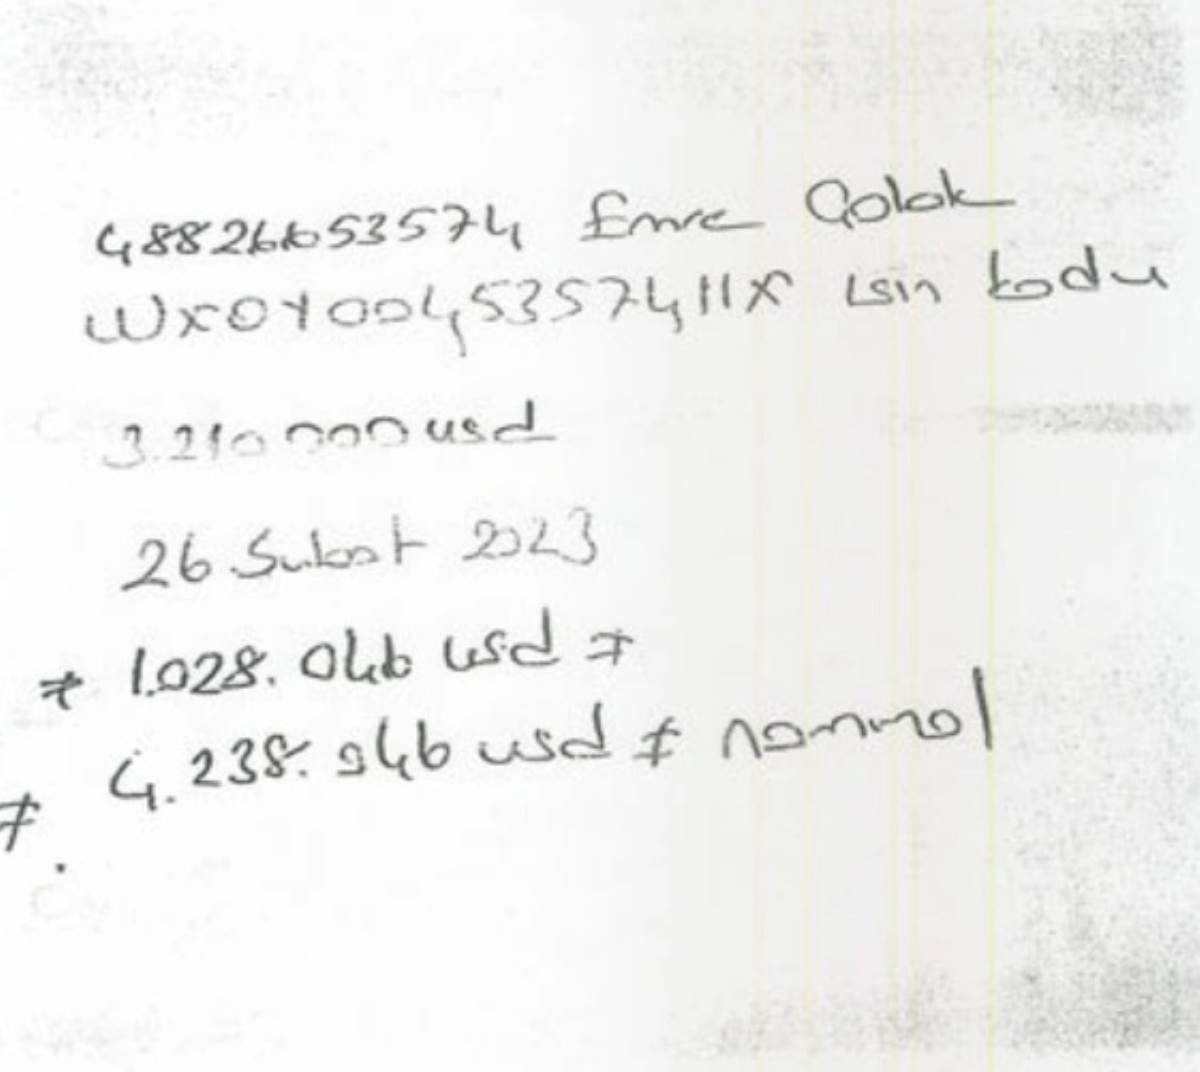 48826653574 Emre Çolak
WX0Y004535741IX ısin kodu
3.210 000 usd
26 Subat 2023
≠ 1.028. 046 usd ≠
≠. 4.238. 046 usd ≠ nominal